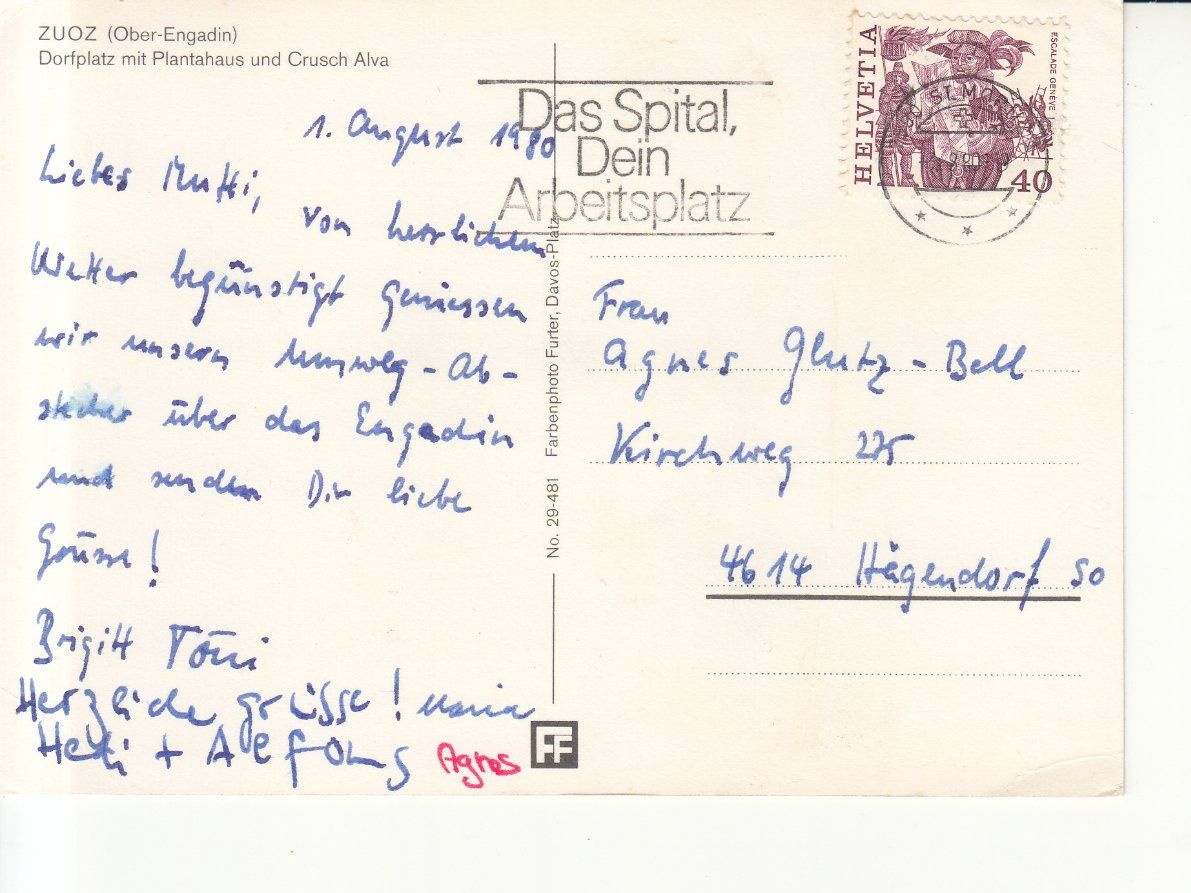 ZUOZ (Ober-Engadin)
Dorfplatz mit Plantahaus und Crusch Alva
1. August 1980
Liebes Mutti,
von herrlichem
Wetter begünstigt geniessen
wir unsern Umweg-Ab-
stecher über das Engadin
und senden Dir liebe
Grüsse!
Brigitt Töni
Herzliche grüsse! Maria
Hedi + Alfons Agnes
No. 29-481 Farbenphoto Furter, Davos-Platz
FF
Das Spital,
Dein
Arbeitsplatz
HELVETIA
ESCALADE GENÈVE
40
ST. MORITZ
Frau
Agnes Glutz-Bell
Kirchweg 275
4614 Hägendorf SO